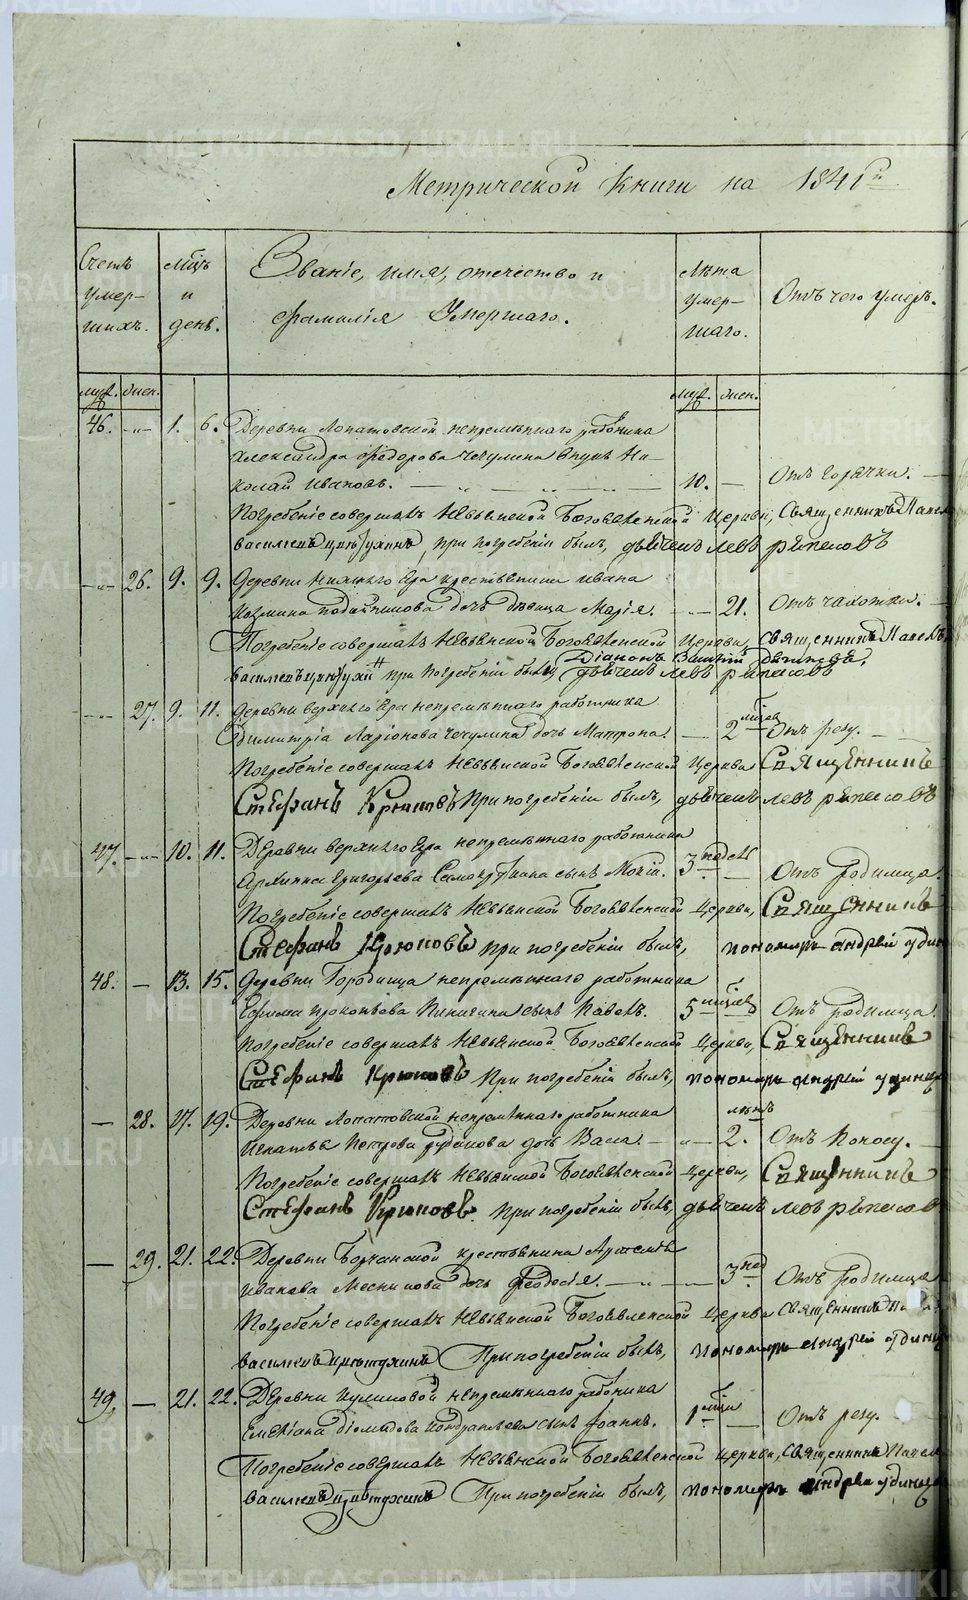 METRIKI.GASO-URAL.RU
Метрической Книги на 1841й
Счетъ умер-шихъ.
мсцъ и день.
Званіе, имя, отечество и
фамилія Умершаго.
Лѣта умер-шаго.
Отъ чего умеръ.
муж. жен. муж. жен.
46. 1. 6. Деревни Лопатовской непремѣннаго работника
Александра Федорова Чечулина внукъ Ни-
колай Ивановъ. 10. Отъ горячки.
Погребеніе совершалъ Невьянской Богоявленской Церкви, Священникъ
Василий при погребеніи былъ, дьячекъ левъ
26. 9. 9. Деревни Нижняго Яра крестьянина Ивана
Козмина дочь дѣвица Марія. 21. Отъ чахотки.
Погребеніе совершалъ Невьянской Богоявленской Церкви, Священникъ
Діаконъ
при погребеніи былъ дьячекъ левъ
27. 9. 11. Деревни верхняго Яра непремѣннаго работника
Димитрія Ларіонова Чечулина дочь Матрона. 2 мсцев Отъ резу.
Погребеніе совершалъ Невьянской Богоявленской Церкви Священникъ
Стефанъ Крюковъ При погребеніи былъ, дьячекъ левъ
47. 10. 11. Деревни верхняго Яра непремѣннаго работника
Архиппа Григорьева сынъ Мокій. 3 недел Отъ родимца.
Погребеніе совершалъ Невьянской Богоявленской Церкви, Священникъ
Стефанъ Крюковъ при погребеніи былъ, пономарь андрей
48. 13. 15. Деревни Городища непремѣннаго работника
Ефима Прокопьева сынъ Павелъ. 5 мсцев Отъ родимца.
Погребеніе совершалъ Невьянской Богоявленской Церкви, Священникъ
Стефанъ Крюковъ При погребеніи былъ, пономарь андрей
28. 17. 19. Деревни Лопатовской непремѣннаго работника
Игнатья Петрова дочь Васса. 2. лѣтъ Отъ поносу.
Погребеніе совершалъ Невьянской Богоявленской Церкви, Священникъ
Стефанъ Крюковъ. При погребеніи былъ, дьячекъ левъ
29. 21. 22. Деревни крестьянина
Иванова дочь Феодосія. 3 нед Отъ родимца
Погребеніе совершалъ Невьянской Богоявленской Церкви Священникъ
При погребеніи былъ, пономарь андрей
49. 21. 22. Деревни Куликовой непремѣннаго работника
Емеліана Діомидова Кондратьева сынъ Іоаннъ. 1 мсца Отъ резу.
Погребеніе совершалъ Невьянской Богоявленской Церкви, Священникъ
При погребеніи былъ, пономарь андрей